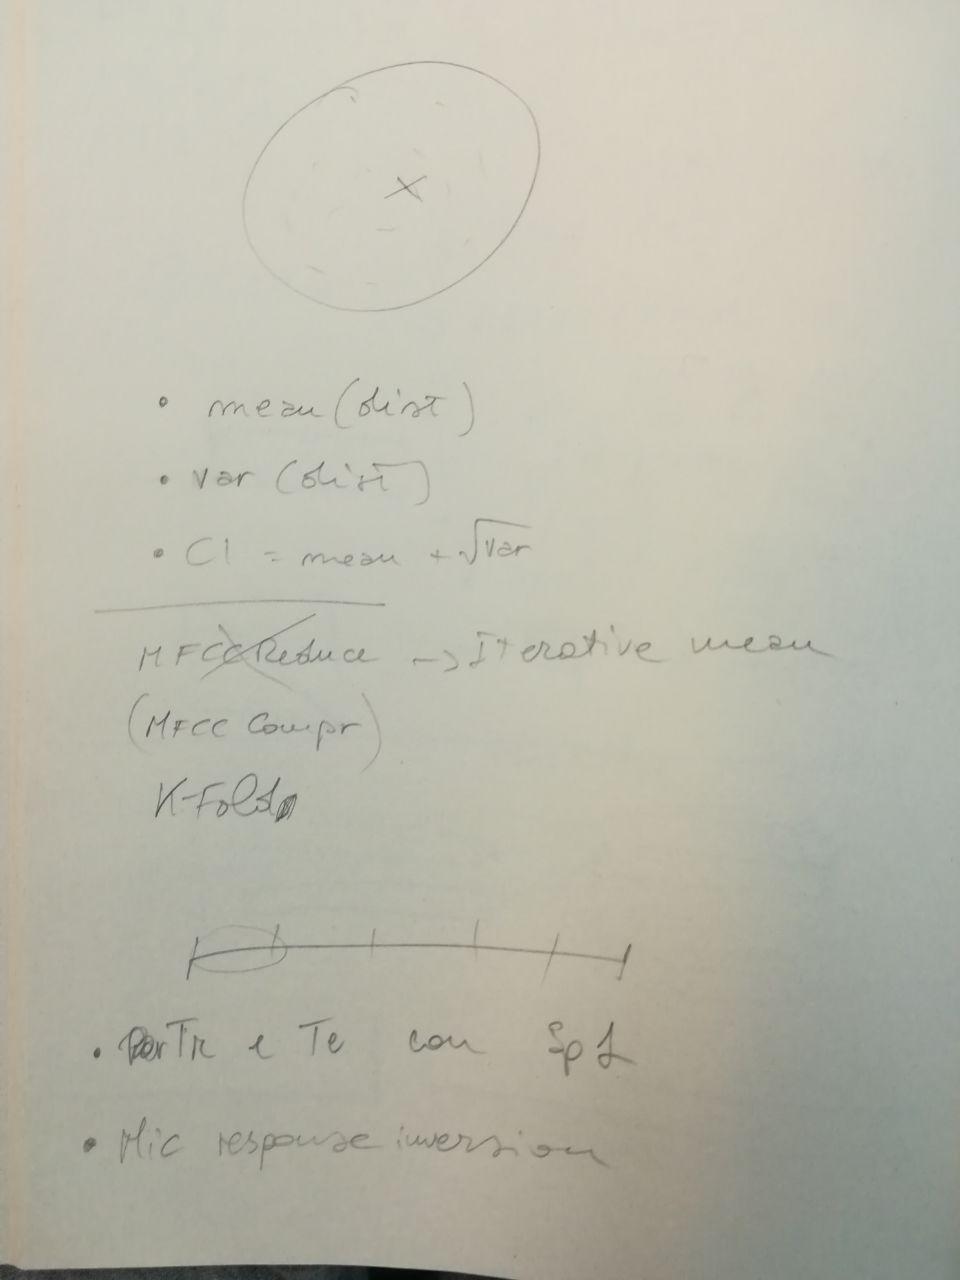 • mean (dist)
• var (dist)
• CI = mean + √var
MFCC Reduce → Iterative mean
(MFCC Compr)
K-Fold
• Tr e Te con Sp 1
• Mic response inversion